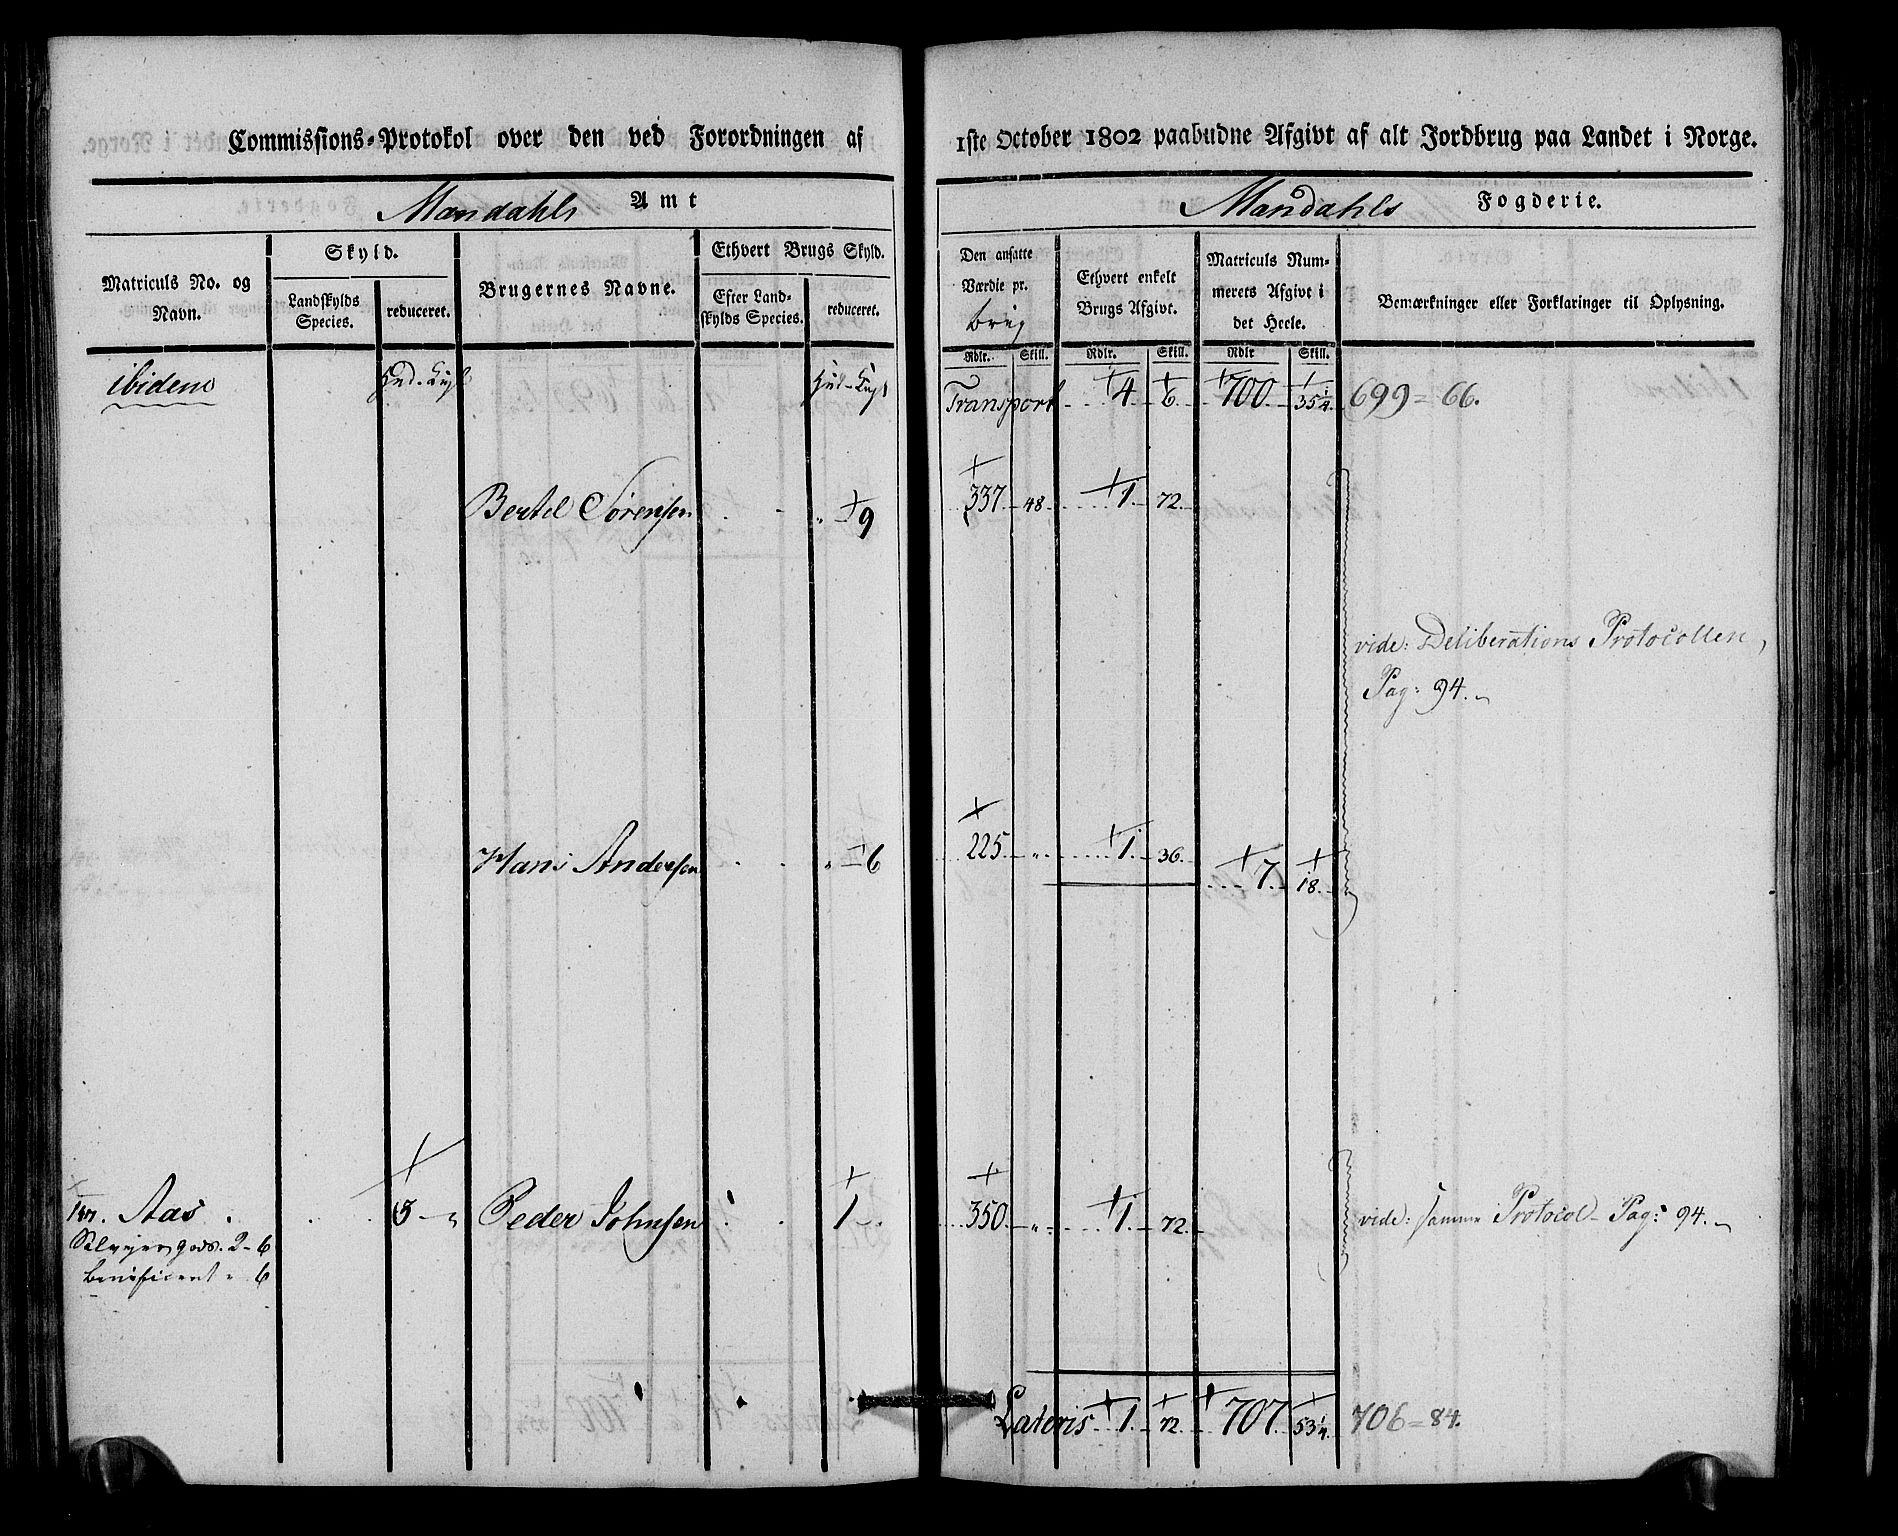 Commissions-Protokol over den ved Forordningen af 1ste October 1802 paabudne Afgivt af alt Jordbrug paa Landet i Norge.
Mandahls Amt
Mandahls Fogderie.
Matriculs No. og Navn.
Skyld.
Landskylds Species.
reduceret.
Brugernes Navne.
Ethvert Brugs Skyld.
Efter Landskylds Species.
reduceret.
Den ansatte Værdie pr. brug
Ethvert enkelt Brugs Afgivt.
Matriculs Nummerets Afgivt i det Heele.
Bemærkninger eller Forklaringer til Oplysning.
Rdlr. Skill. Rdlr. Skill. Rdlr Skill.
ibidem Hud. Hud- Transport 4. 6. 700. 35 1/4. 699 = 66.
Bertel Sörensen " 9 337 48 1. 72.
vide: Deliberations Protocollen,
Pag: 94.
Hans Andersen " 6 225 " 1. 36. 7. 18.
Aas. 3 " Peder Johnsen 1 350 " 1. 72. vide: samme Protocol Pag: 94.
Selveyer gods. 2 - 6
beneficeret " 6
Lateris 1. 72. 707. 53 1/4. 706 = 84.